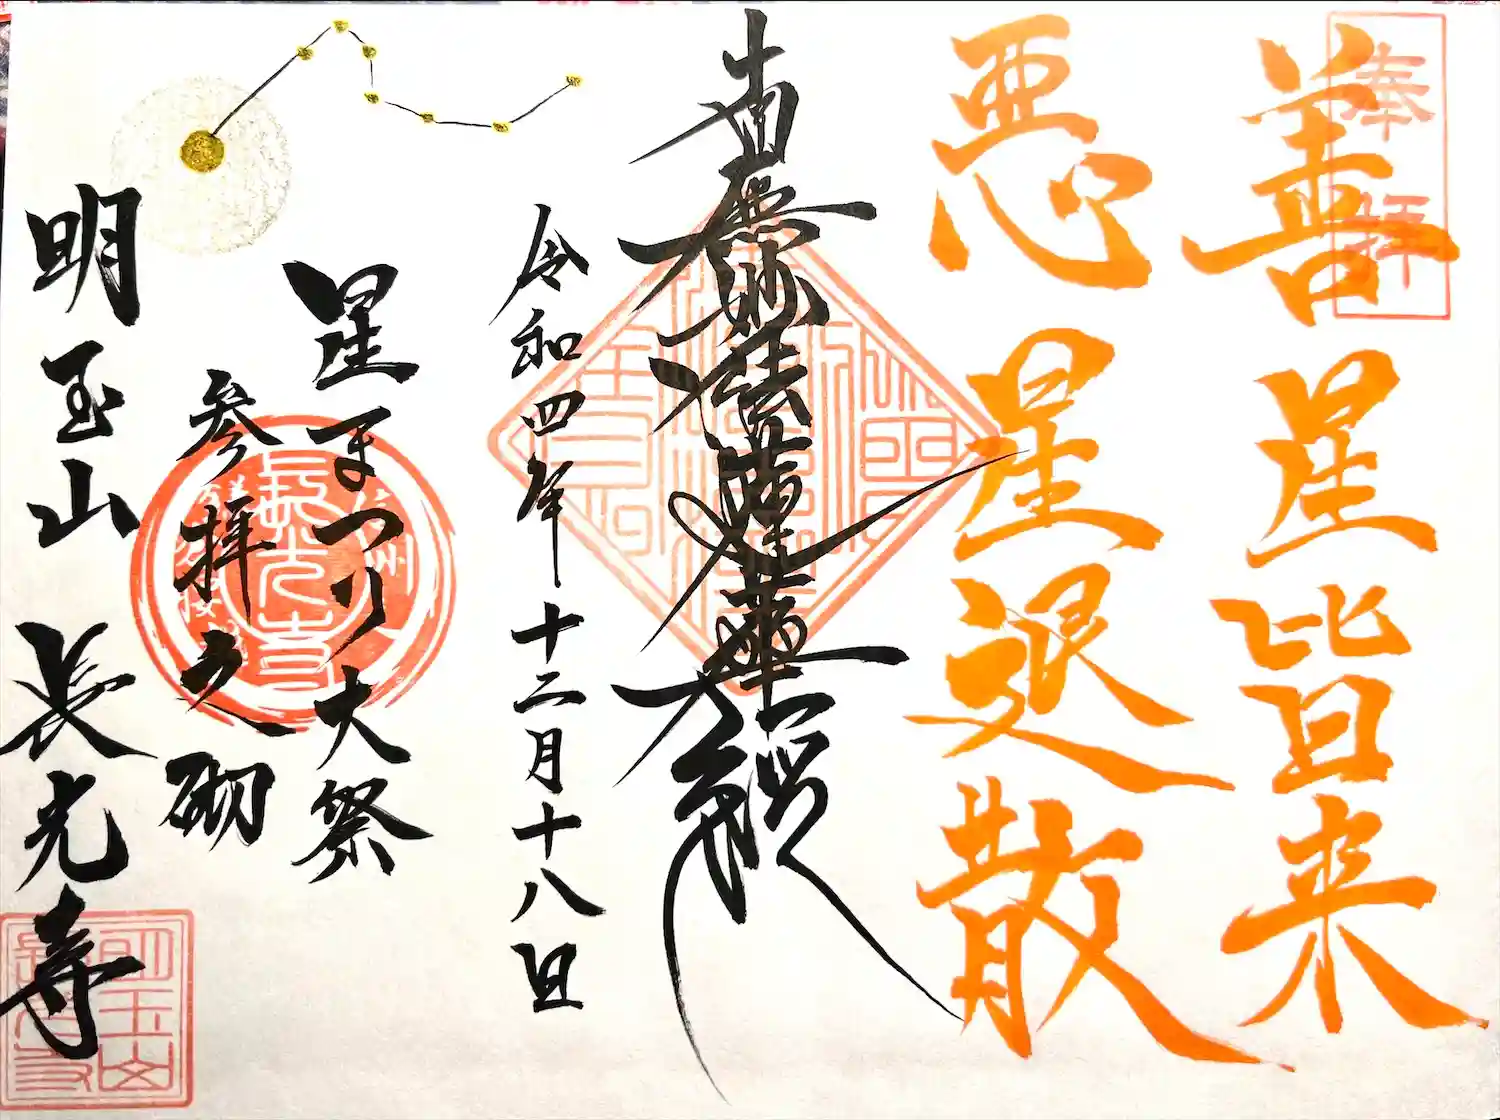 奉拝
善星皆来
悪星退散
南無妙法蓮華経
令和四年十二月十八日
星まつり大祭
参拝之砌
明玉山 長光寺
長光寺
明玉山